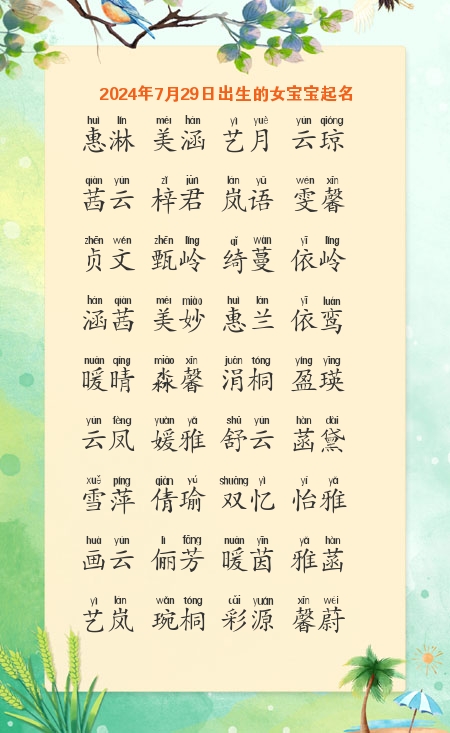 2024年7月29日出生的女宝宝起名
huì lín měi hán yì yuè yún qióng
惠淋 美涵 艺月 云琼
qiàn yún zǐ jūn lán yǔ wén xīn
茜云 梓君 岚语 雯馨
zhēn wén zhēn líng qǐ wàn yī líng
贞文 甄岭 绮蔓 依岭
hán qiàn měi miào huì lán yī luán
涵茜 美妙 惠兰 依鸾
nuǎn qíng miǎo xīn juān tóng yíng yīng
暖晴 淼馨 涓桐 盈瑛
yún fèng yuàn yǎ shū yún hàn dài
云凤 媛雅 舒云 菡黛
xuě píng qiàn yú shuāng yì yí yǎ
雪萍 倩瑜 双忆 怡雅
huà yún lì fāng nuǎn yīn yǎ hàn
画云 俪芳 暖茵 雅菡
yì lán wǎn tóng cǎi yuán xīn wèi
艺岚 琬桐 彩源 馨蔚